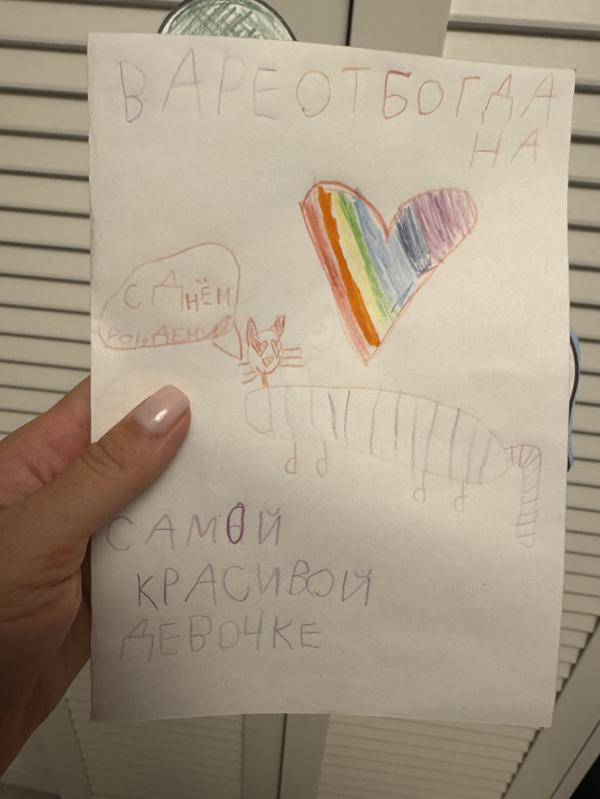 ВАРЕОТБОГДА
НА
С ДНЁМ
РОЖДЕНИЯ
САМОЙ
КРАСИВОЙ
ДЕВОЧКЕ